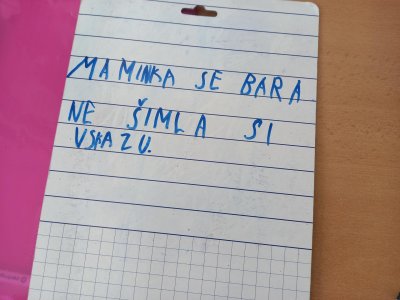 MAMINKA SE BARA
NE ŠIMLA SI
VSKAZU.